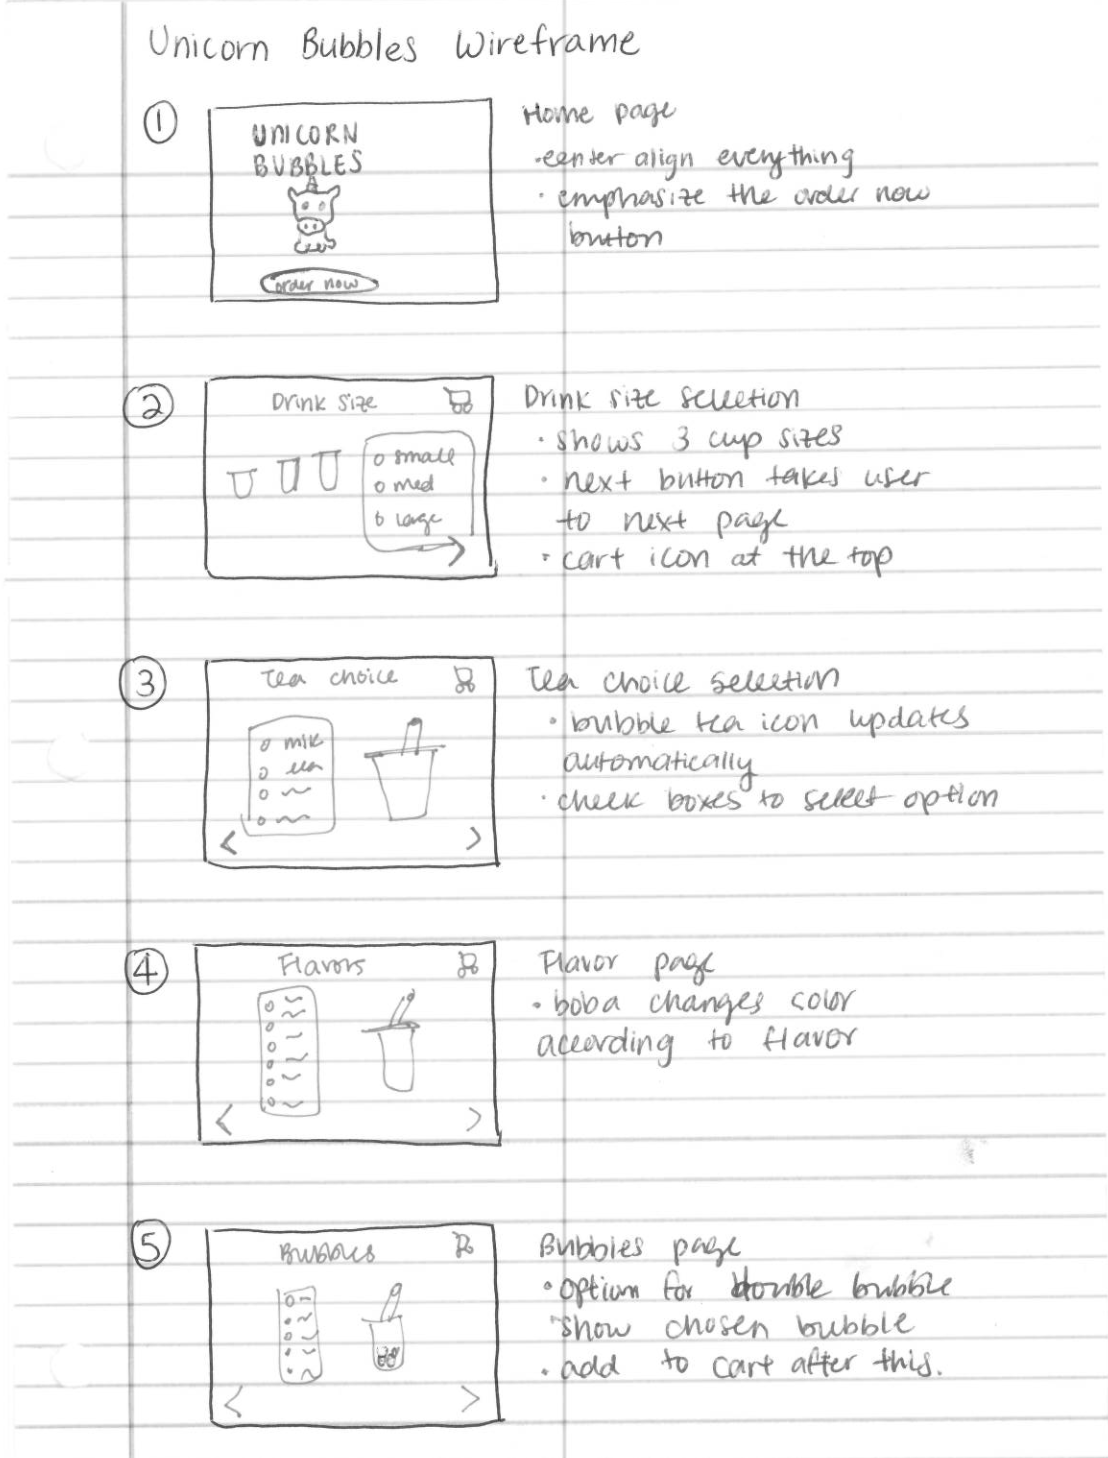 Unicorn Bubbles Wireframe
1
UNICORN
BUBBLES
order now
Home page
·center align everything
· emphasize the order now
button
2
Drink size
o small
o med
o large
Drink size selection
· shows 3 cup sizes
· next button takes user
to next page
· cart icon at the top
3
Tea choice
o milk
o tea
o
o
Tea choice selection
· bubble tea icon updates
automatically
· check boxes to select option
4
Flavors
Flavor page
· boba changes color
according to flavor
5
Bubbles
Bubbles page
· option for double bubble
· show chosen bubble
· add to cart after this.